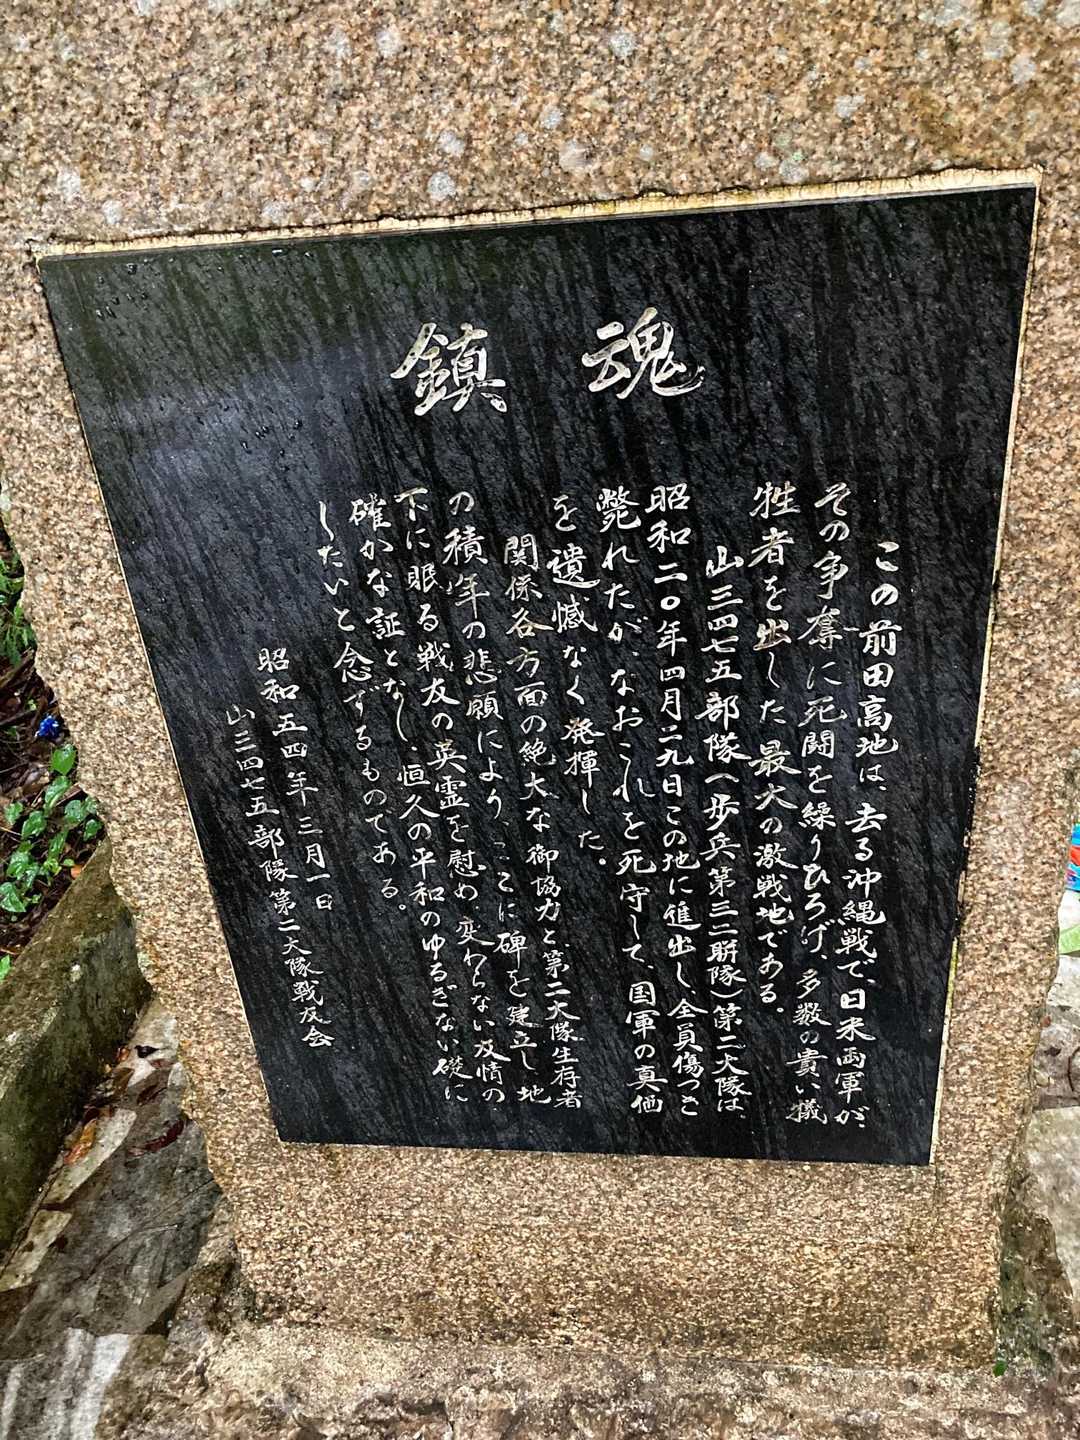 鎮魂
この前田高地は、去る沖縄戦で、日米両軍が、
その争奪に死闘を繰りひろげ、多数の貴い犠
牲者を出した最大の激戦地である。
山三四七五部隊(歩兵第三二聨隊)第二大隊は、
昭和二〇年四月二九日この地に進出し、全員傷つき
斃れたが、なおこれを死守して、国軍の真価
を遺憾なく発揮した。
関係各方面の絶大な御協力と、第二大隊生存者
の積年の悲願により、ここに碑を建立し、地
下に眠る戦友の英霊を慰め、変わらない友情の
確かな証となし、恒久の平和のゆるぎない礎に
したいと念ずるものである。
昭和五四年三月一日
山三四七五部隊第二大隊戦友会